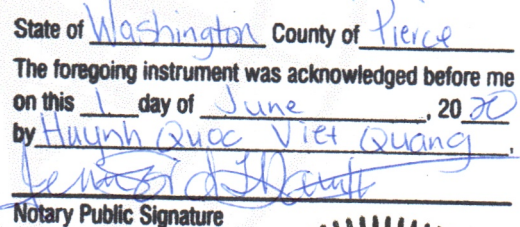 State of Washington County of Pierce
The foregoing instrument was acknowledged before me
on this 1 day of June, 2020
by Huynh Quoc Viet Quang,
Notary Public Signature